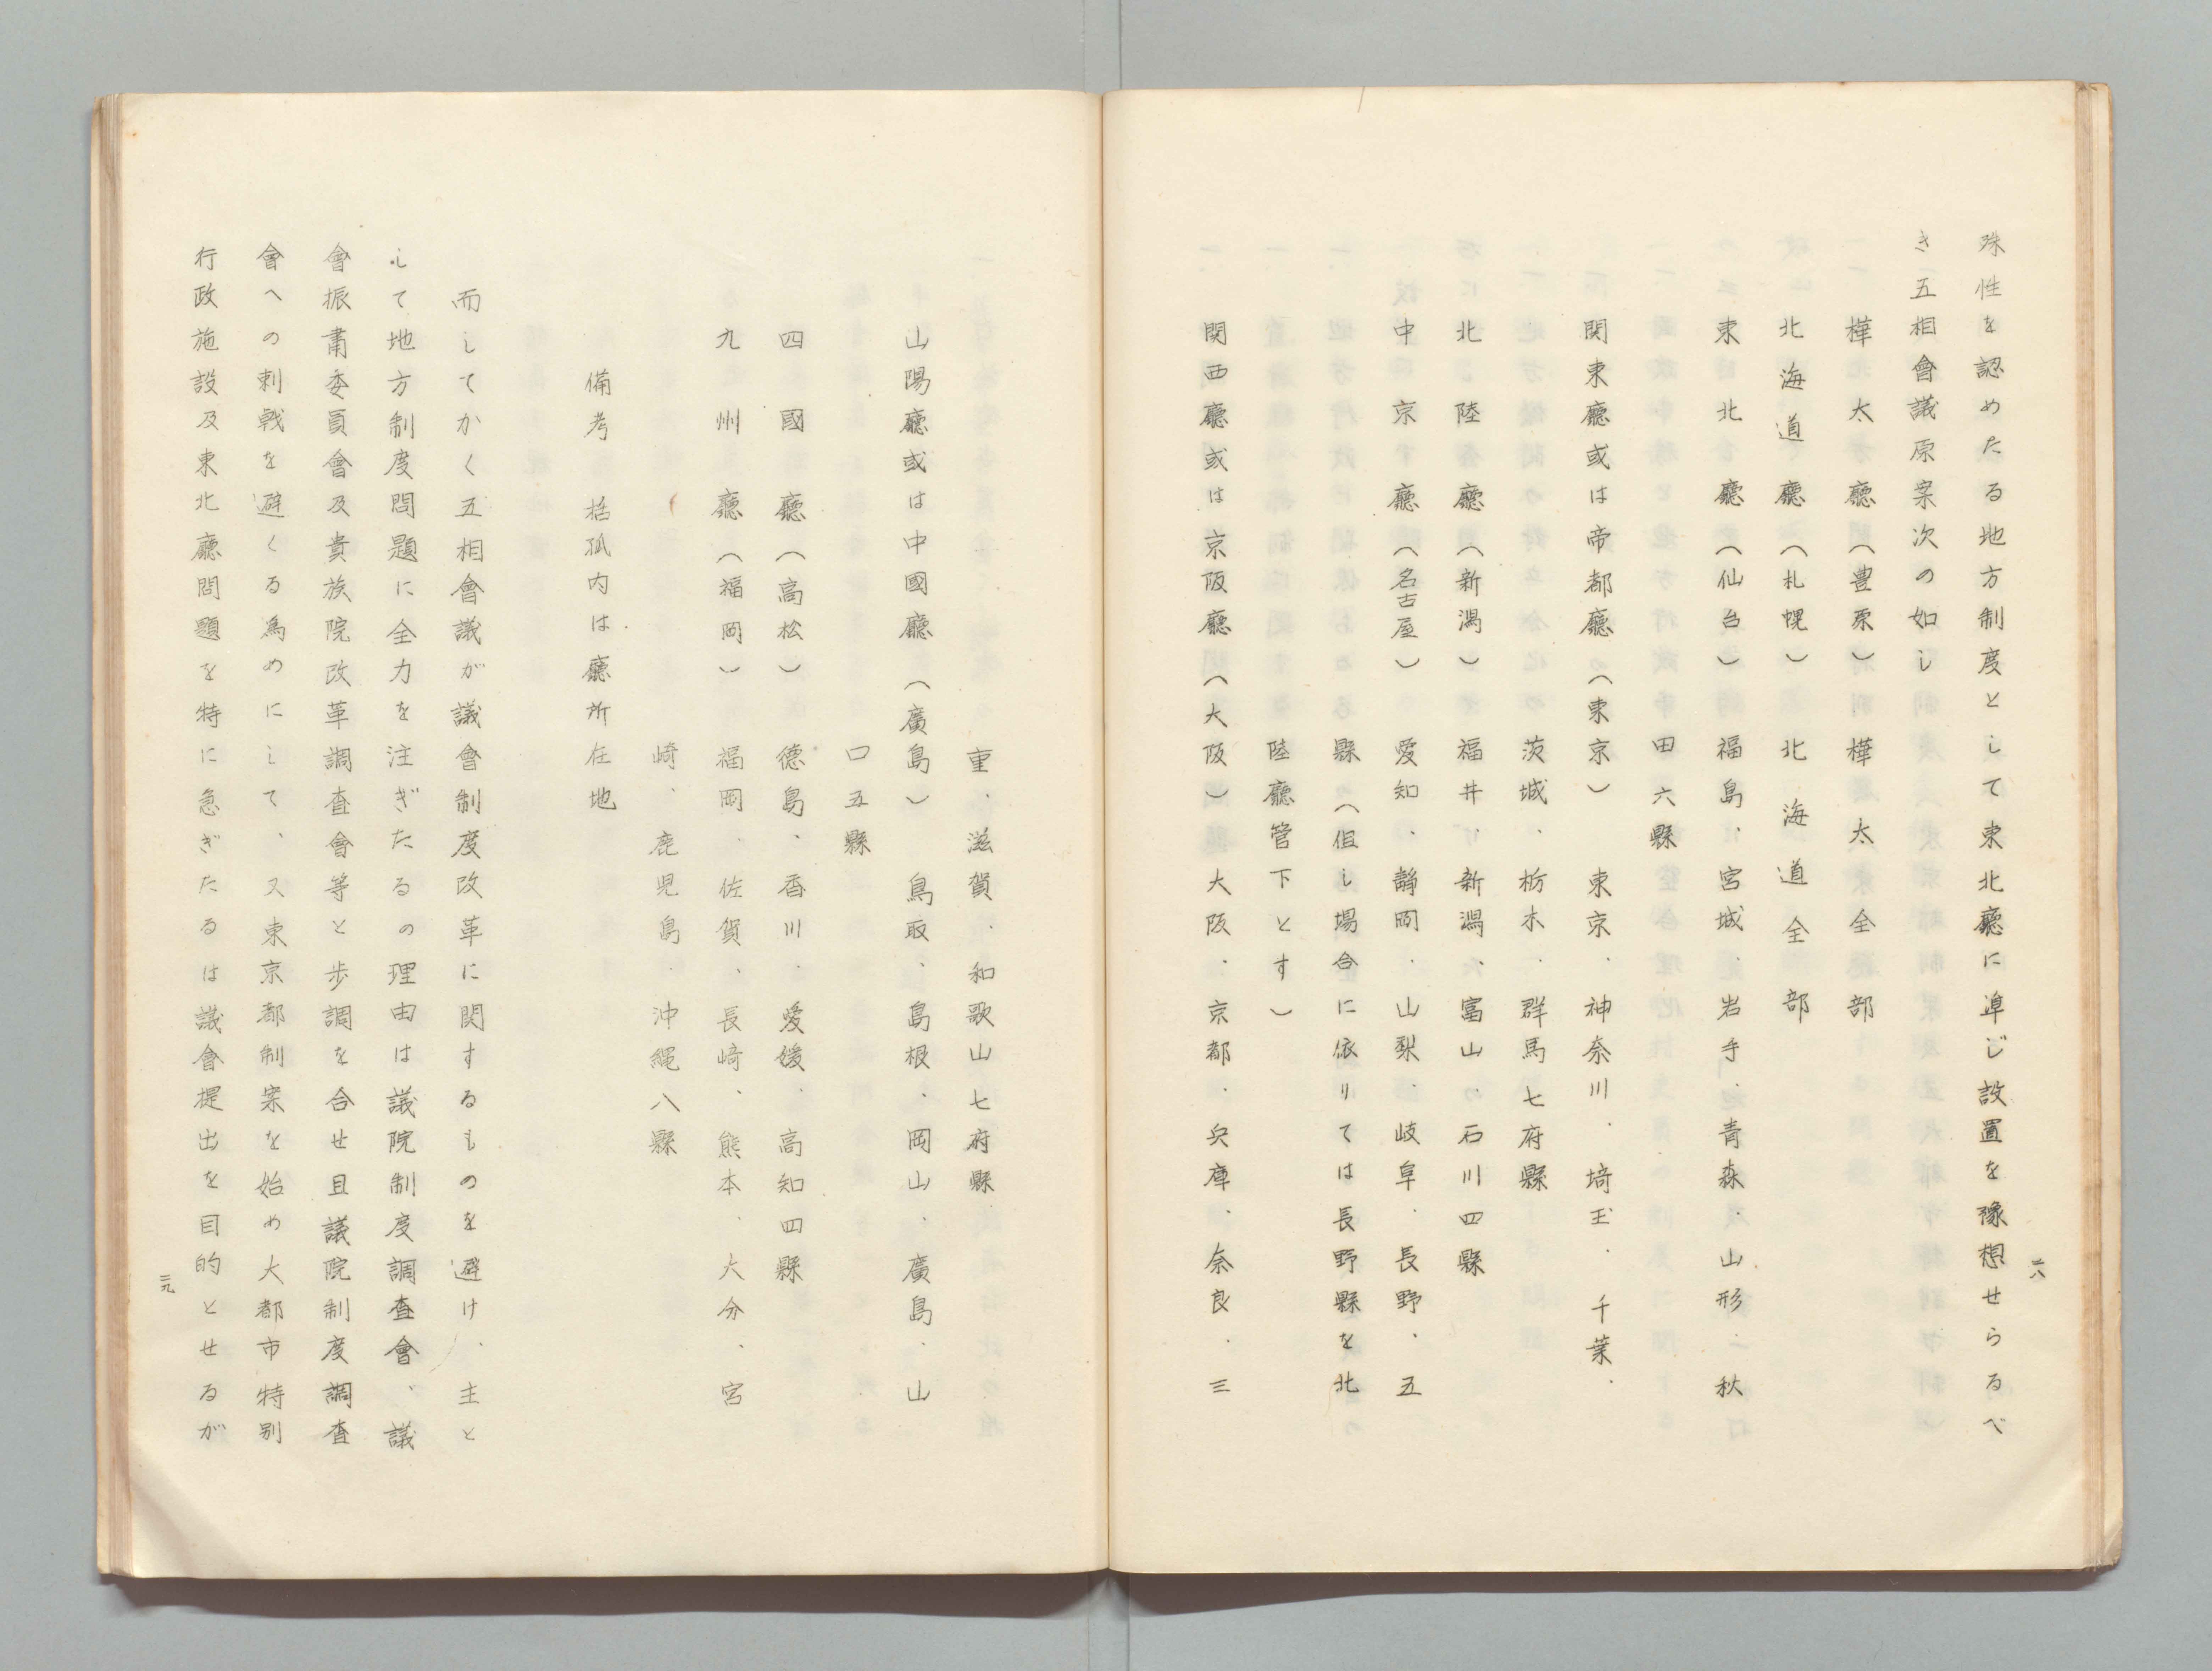 殊性を認めたる地方制度として東北廳に準じ設置を豫想せらるべ
き五相會議原案次の如し
樺太廳（豊原）　樺太全部
北海道廳（札幌）　北海道全部
東北廳（仙台）　福島、宮城、岩手、青森、山形、秋
田六縣
関東廳或は帝都廳（東京）　東京、神奈川、埼玉、千葉、
茨城、栃木、群馬七府縣
北陸廳（新潟）　福井、新潟、富山、石川四縣
中京廳（名古屋）　愛知、静岡、山梨、岐阜、長野、五
縣（但し場合に依りては長野縣を北
陸廳管下とす）
関西廳或は京阪廳（大阪）　大阪、京都、兵庫、奈良、三
二八
重、滋賀、和歌山七府縣
山陽廳或は中國廳（廣島）　鳥取、島根、岡山、廣島、山
口五縣
四國廳（高松）　徳島、香川、愛媛、高知四縣
九州廳（福岡）　福岡、佐賀、長崎、熊本、大分、宮
崎、鹿児島、沖縄八縣
備考　括孤内は廳所在地
而してかく五相會議が議會制度改革に関するものを避け、主と
して地方制度問題に全力を注ぎたるの理由は議院制度調査會、議
會振粛委員會及貴族院改革調査會等と歩調を合せ且議院制度調査
會への刺戟を避くる為めにして、又東京都制案を始め大都市特別
行政施設及東北廳問題を特に急ぎたるは議會提出を目的とせるが
二九